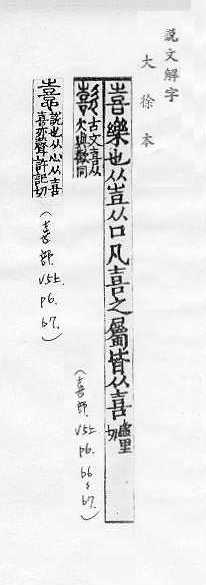 說文解字
大徐本
喜樂也从壴从口凡喜之屬皆从喜虛里切
古文喜从欠與歡同
憙說也从心从喜喜亦聲許記切
(喜部. V5上 p6. b6 & b7.)
(喜部. V5上 p6. b7.)